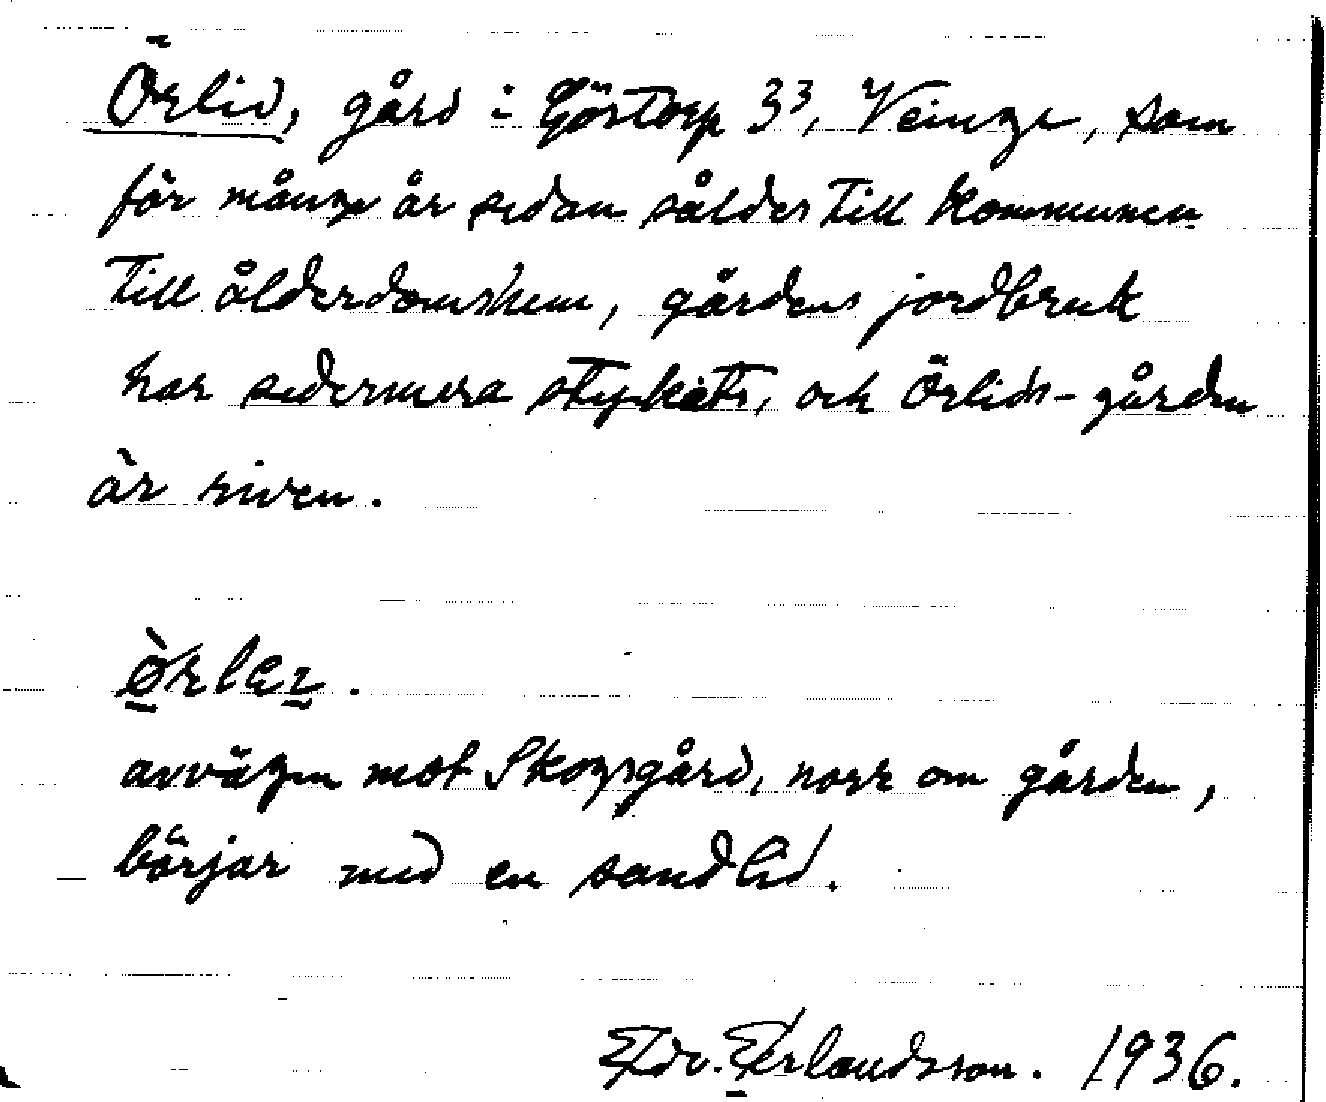 Örlid, gård i Göstorp 3³, Veinge, som
för många år sedan såldes till kommunen
till ålderdomshem, gårdens jordbruk
har sedermera styckats, och Örlids-gården
är riven.
avvägen mot Skogsgård, norr om gården,
börjar med en sandlid.
Edv. Erlandsson. 1936.